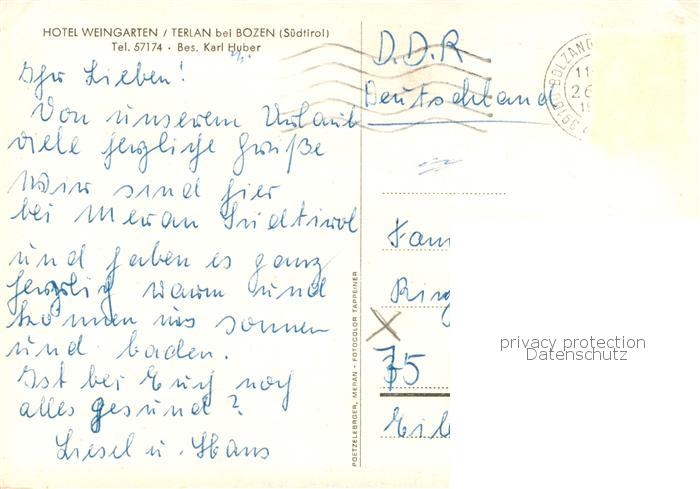 HOTEL WEINGARTEN / TERLAN bei BOZEN (Südtirol)
Tel. 57174 · Bes. Karl Huber
Ihr Lieben!
Von unserem Urlaub
viele herzliche Grüße
Wir sind hier
bei Meran Südtirol
und haben es ganz
herzlich warm und
können uns sonnen
und baden.
Ist bei Euch noch
alles gesund?
Liesel u. Hans
POETZELEBERGER, MERAN · FOTOCOLOR TAPPEINER
D.D.R
Deutschland
39100 BOLZANO
11
26
19
Fam
Ring
X
75
Eil
privacy protection
Datenschutz